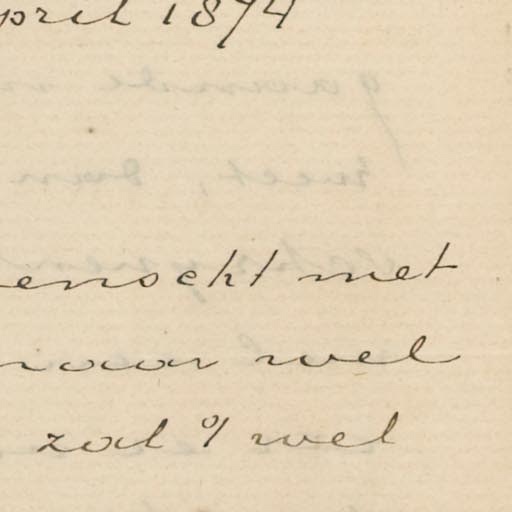 pril 1874
enscht met
naar wel
zal 't wel